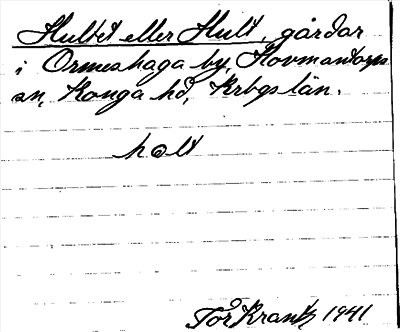 Hultet eller Hult, gårdar
i Ormeshaga by, Hovmantorps
sn, Konga hd, Krbgs län.
hɷlt
Tor Krantz 1941